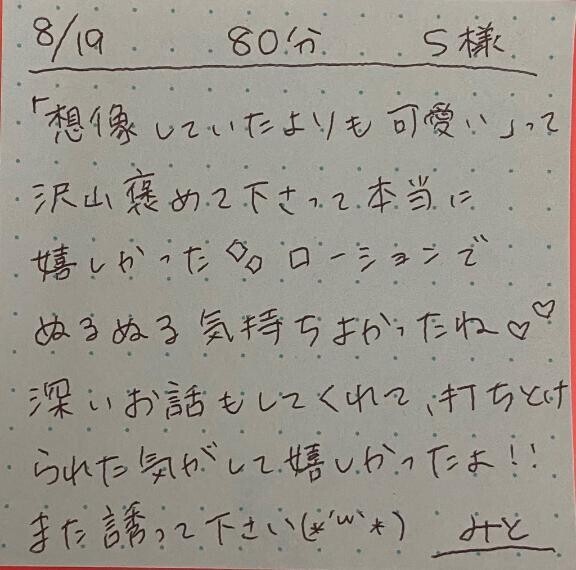 8/19 80分 S様
「想像していたよりも可愛い」って
沢山褒めて下さって本当に
嬉しかった ローションで
ぬるぬる気持ちよかったね♡♡
深いお話もしてくれて、打ちとけ
られた気がして嬉しかったよ!!
また誘って下さい(*'ω'*) みと